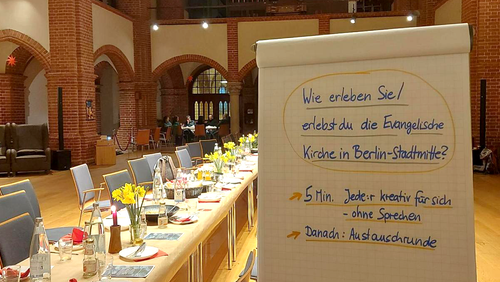 Wie erleben Sie/
erlebst du die Evangelische
Kirche in Berlin-Stadtmitte?
→ 5 Min. Jede:r kreativ für sich
- ohne Sprechen
→ Danach: Austauschrunde